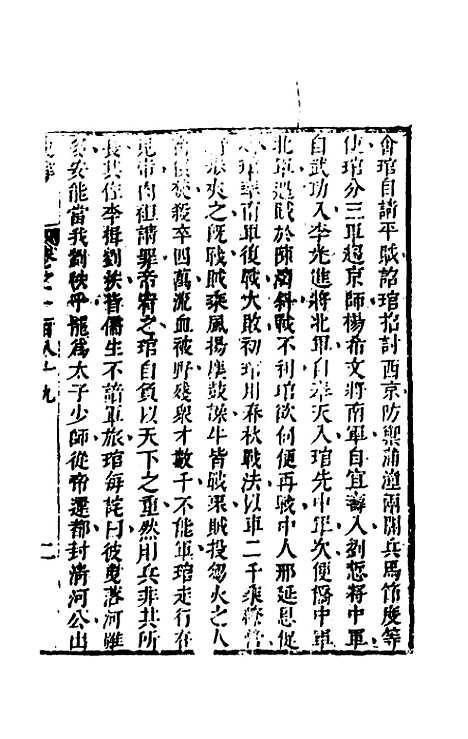 會琯自請平賊詔琯招討西京防禦蒲潼兩關兵馬節度等
使琯分三軍趨京師楊希文將南軍自宜壽入劉悊將中軍
自武功入李光進將北軍自奉天入琯先中軍次便橋中軍
北軍遇賊於陳濤斜戰不利琯欲何便再戰中人邢延恩促
率南軍復戰大敗初琯用春秋戰法以車二千乘
夾之既戰賊乘風揚塵鼓譟牛皆戰栗賊投芻火之人
焚殺卒四萬流血被野殘衆才數千不能軍琯走行在
見帝肉袒請罪帝宥之琯自負以天下之重然用兵非其所
長其佐李楫劉秩皆儒生不諳軍旅琯每詫曰彼曳落河雖
多安能當我劉秩乎龍爲太子少師從帝還都封清河公出
卷之一百八十九 二